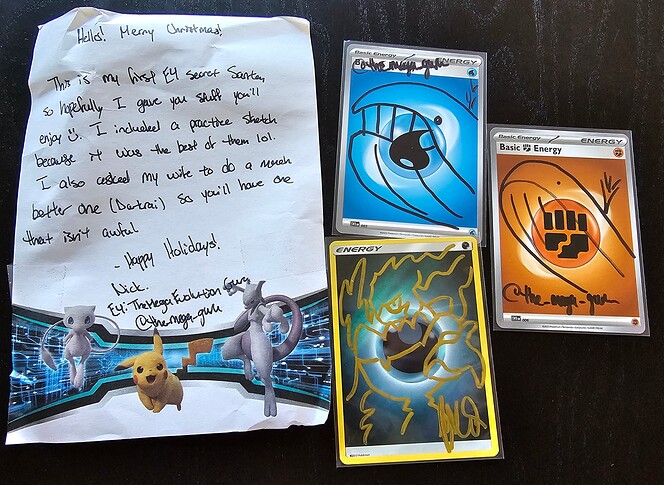 Hello! Merry Christmas!
This is my first E4 Secret Santa,
so hopefully I gave you stuff you'll
enjoy☺. I included a practice sketch
because it was the best of them lol.
I also asked my wife to do a much
better one (Darkrai) so you'll have one
that isn't awful.
- Happy Holidays!
Nick.
E4: TheMegaEvolutionGuru
@the_mega_guru
Basic Energy
ENERGY
@the_mega_guru
Basic Energy
ENERGY
Basic Energy
@the_mega_guru
006
ENERGY